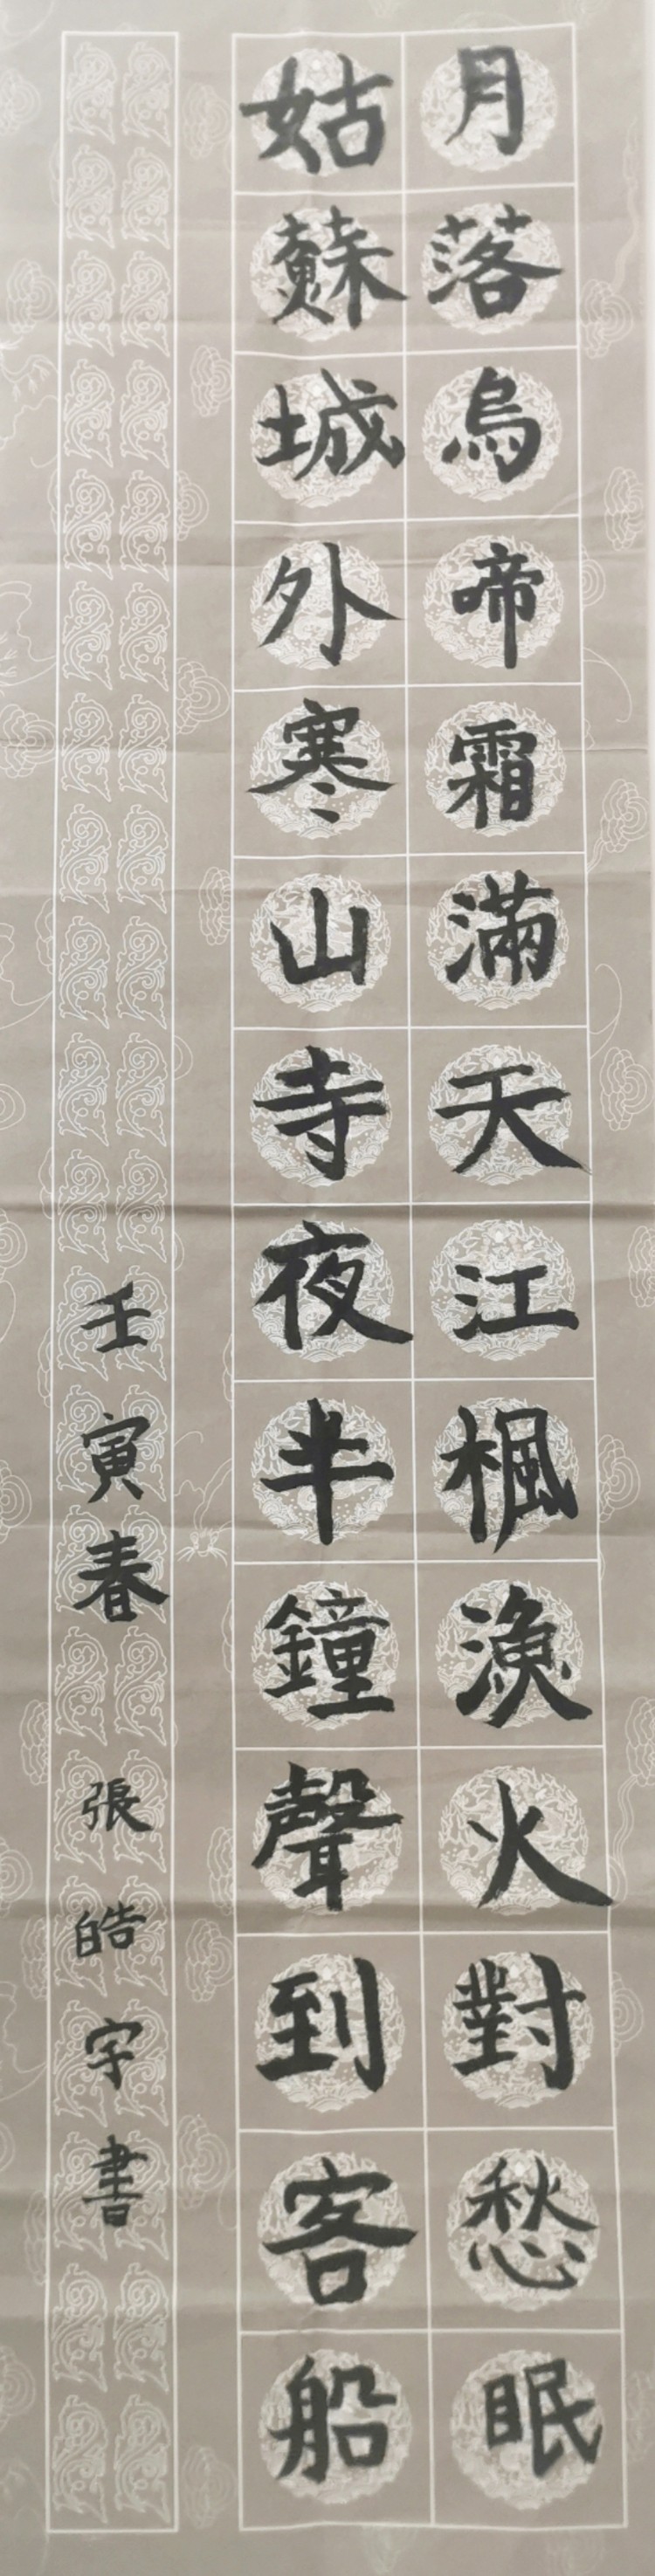 月落烏啼霜滿天江楓漁火對愁眠
姑蘇城外寒山寺夜半鐘聲到客船
壬寅春 張皓字書